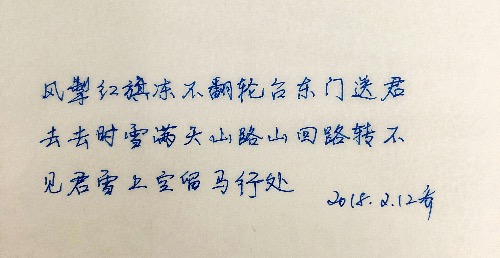 风掣红旗冻不翻轮台东门送君
去去时雪满天山路山回路转不
见君雪上空留马行处
2018.2.12